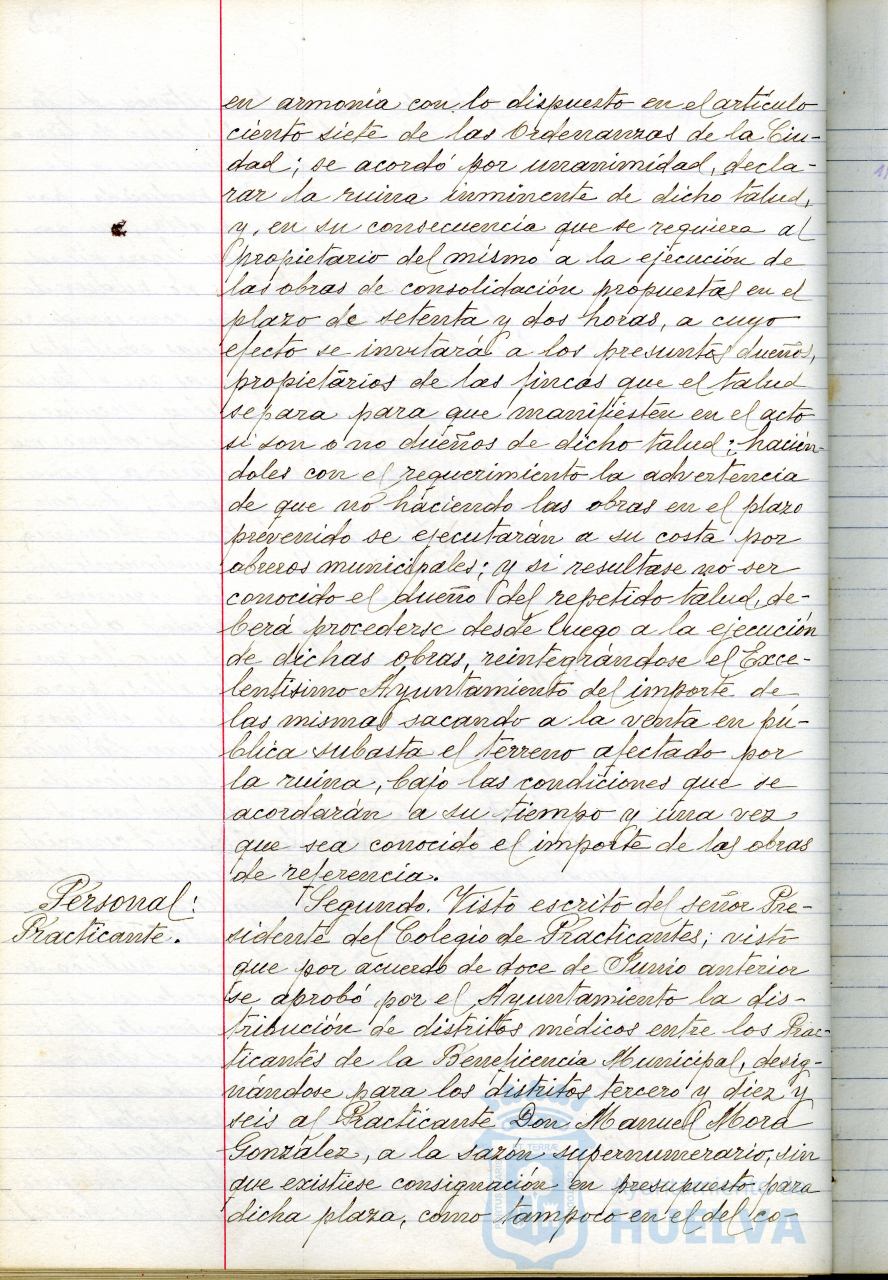 en armonía con lo dispuesto en el artículo
ciento siete de las Ordenanzas de la Ciu-
dad; se acordó por unanimidad, decla-
rar la ruina inminente de dicho talud,
y, en su consecuencia que se requiera al
propietario del mismo a la ejecución de
las obras de consolidación propuestas en el
plazo de setenta y dos horas, a cuyo
efecto se invitará a los presuntos dueños,
propietarios de las fincas que el talud
separa para que manifiesten en el acto
si son o no dueños de dicho talud; hacién-
doles con el requerimiento la advertencia
de que no haciendo las obras en el plazo
prevenido se ejecutarán a su costa por
obreros municipales; y si resultase no ser
conocido el dueño del repetido talud, de-
berá procederse desde luego a la ejecución
de dichas obras, reintegrándose el Exce-
lentísimo Ayuntamiento del importe de
las mismas sacando a la venta en pú-
blica subasta el terreno afectado por
la ruina, bajo las condiciones que se
acordarán a su tiempo y una vez
que sea conocido el importe de las obras
de referencia.
Personal:
Practicante.
Segundo. Visto escrito del señor Pre-
sidente del Colegio de Practicantes; visto
que por acuerdo de doce de Junio anterior
se aprobó por el Ayuntamiento la dis-
tribución de distritos médicos entre los Prac-
ticantes de la Beneficencia Municipal, desig-
nándose para los distritos tercero y diez y
seis al Practicante Don Manuel Mora
González, a la sazón supernumerario, sin
que existiese consignación en presupuesto para
dicha plaza, como tampoco en el del co-
HUELVA